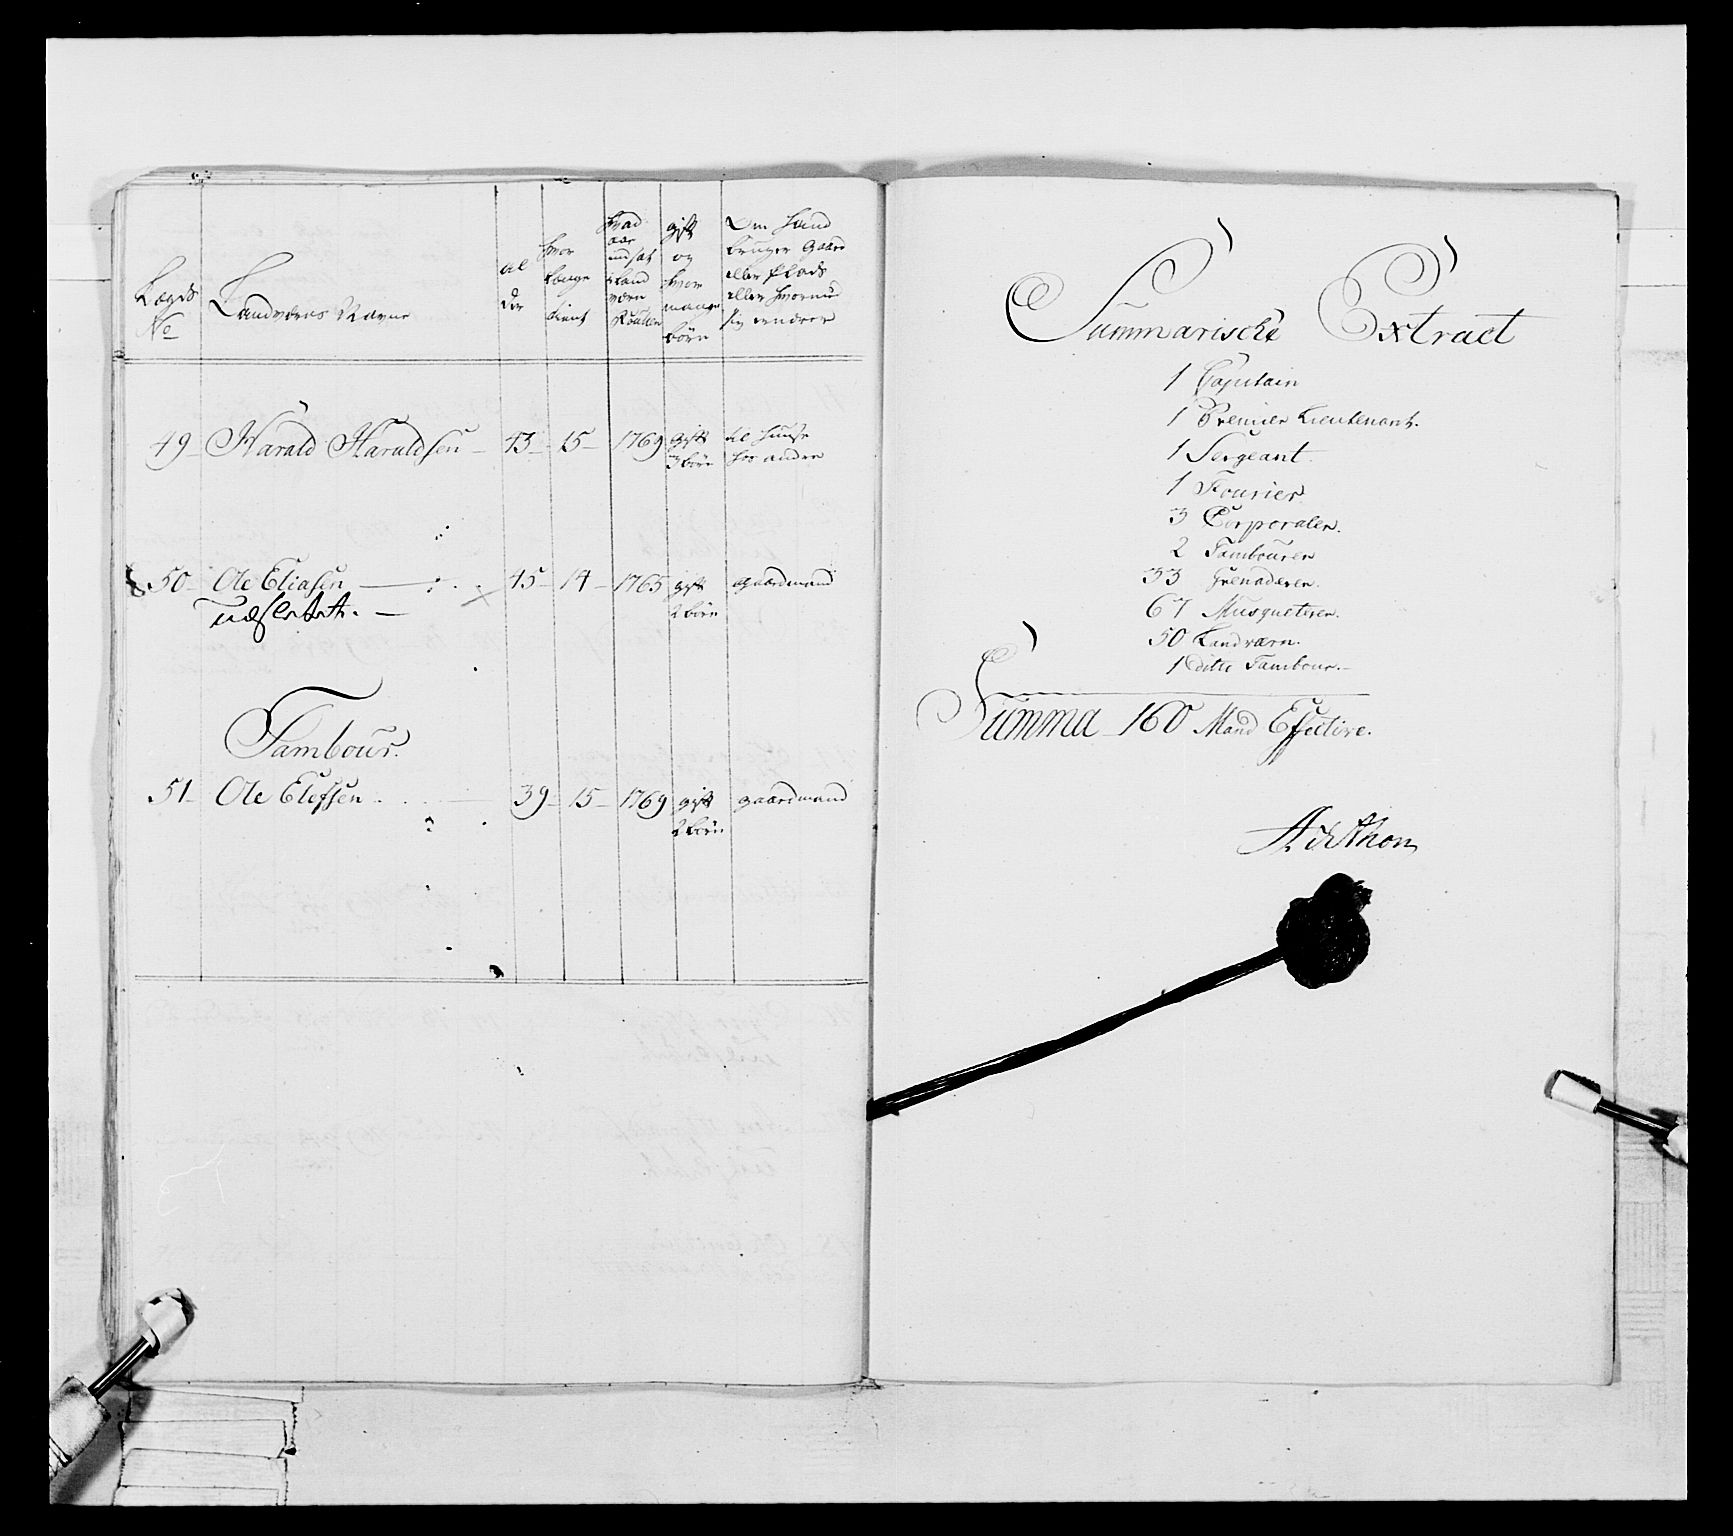 Lægds
No
Landværns Navne
al
der
hvor
længe
tient
hvad
aar
indsat
i Land
værn
Roullen
gift
og
hvor
mange
børn
Om hand
bruger Gaard
eller Plads
eller hvormed
sig ernærer
49 Harald Haraldsen 43 15 1769 gift til huuse
3 børn hos andre
50 Ole Eliasen 45 14 1765 gift gaardmand
Udslettet. 2 børn
Tambour.
51 Ole Elefsen 39 15 1769 gift gaardmand
2 børn
Summarische Extract
1 Capitain
1 Premier Lieutenant.
1 Sergeant.
1 Fourier
3 Corporaler.
2 Tambourer
33 Grenaderer.
67 Musqueterer.
50 Landværn.
1 ditto Tambour.
Summa 160 Mand Effective.